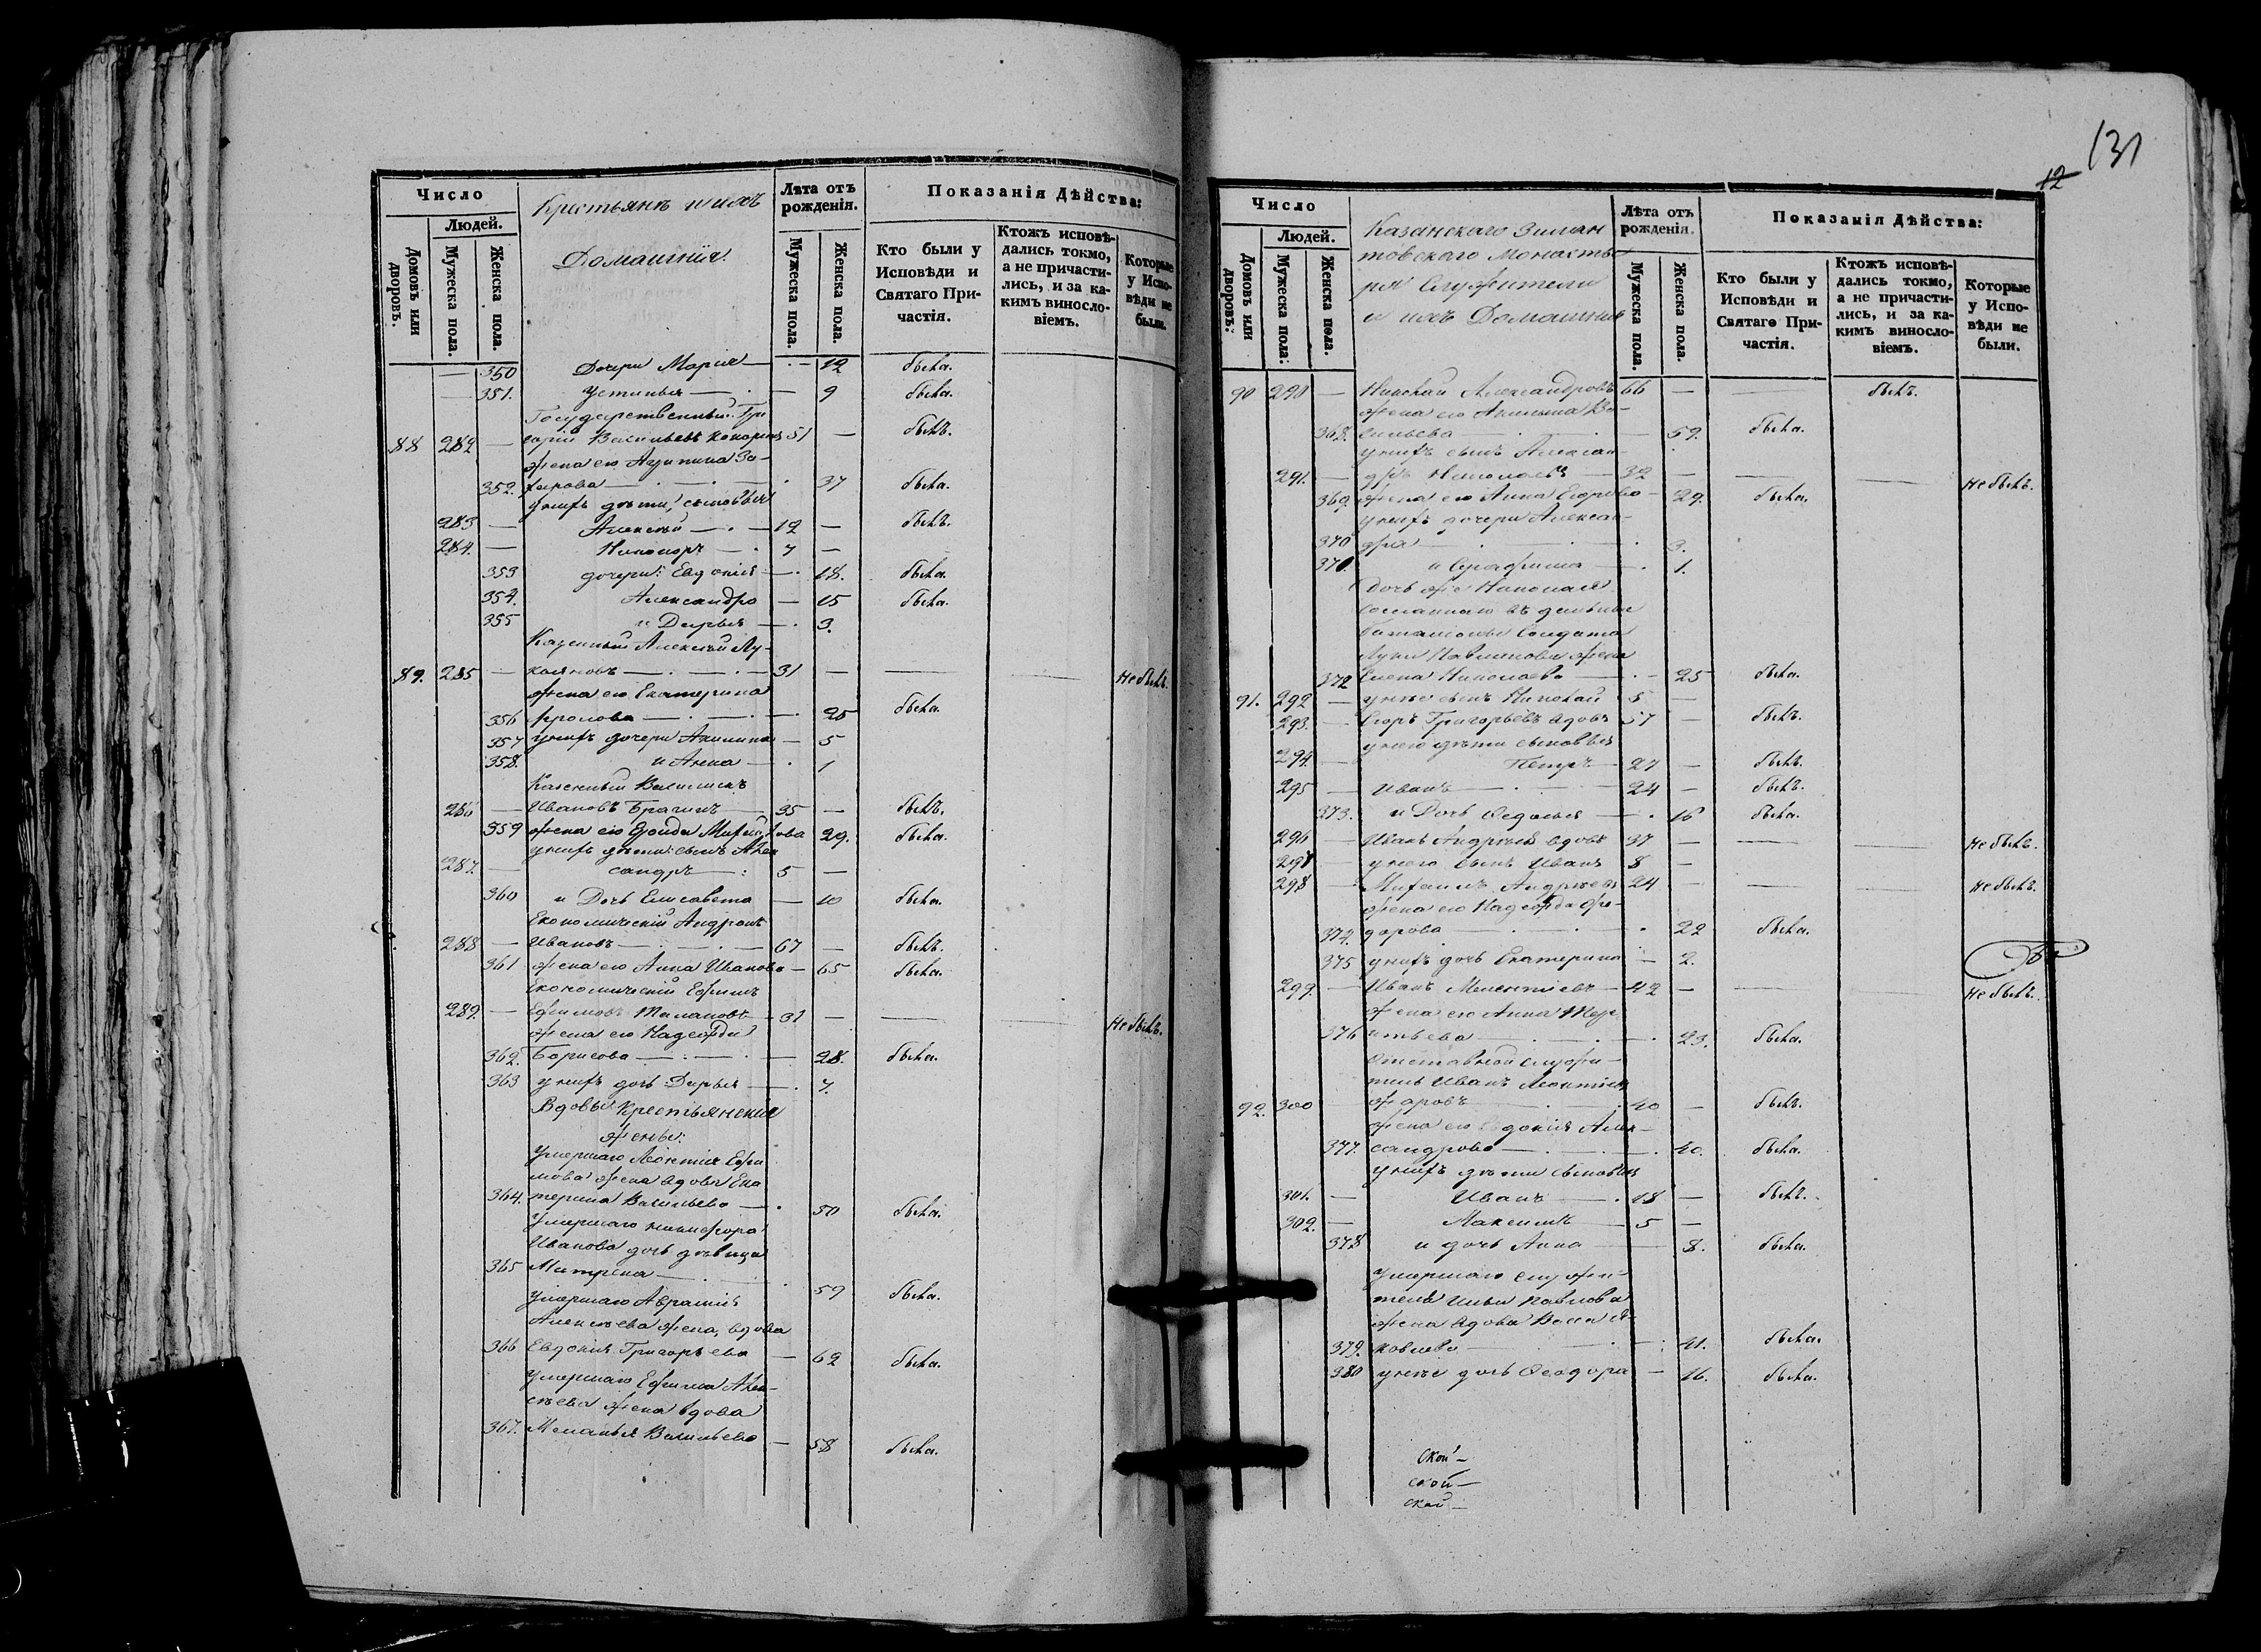 Число
Крестьянъ и ихъ
Домашнія.
Лѣта отъ рожденія.
Показанія Дѣйства:
Людей.
Домовъ или дворовъ.
Мужеска пола.
Женска пола.
Мужеска пола.
Женска пола.
Кто были у Исповѣди и Святаго При-частія.
Ктожъ исповѣ-дались токмо, а не причасти-лись, и за ка-кимъ виносло-віемъ.
Которые у Испо-вѣди не были.
— 350 Дочери Марія — 12 была.
— 351. Устинья — 9 была.
Государственный Гри
88 282 — горій Васильевъ 51 — былъ.
жена его Агрипина За-
352. харова — 37 была.
у нихъ дѣти, сыновья
283 — Алексѣй — 12 — былъ.
284. — Никоноръ — 7 —
353 дочери: Евдокія — 18. была.
354. Александра — 15 была.
355 и Дарья — 3.
Казенный Алексѣй Лу-
89. 285 — кояновъ — 31 — — — Не былъ.
жена его Екатерина
356 Фролова — 25 была.
357 у нихъ дочери Акилина — 5
358. и Анна — 1
Казенный
286 — Ивановъ Брагинъ — 35 — былъ.
359 жена его 29. была.
у нихъ дѣти: сынъ Алек
287. — сандръ — 5 —
360 и Дочь Елисавета — 10 была.
Економическій Андронъ
288 — Ивановъ — 67 — былъ.
361 жена его Анна Иванова — 65 была.
Економическій Ефимъ
289. — Ефимовъ 31 — — — Не былъ.
жена его Надежда
362. Борисова — 28. была.
363 у нихъ дочь Дарья — 7.
Вдовы Крестьянскія
жены:
Умершаго Леонтія Ефи
мова жена вдова Ека
364. терина Васильева — 50 была.
Умершаго Никифора
Иванова дочь дѣвица
365 Матрена — 59 была.
Умершаго Аврамія
Алексѣева жена, вдова
366 Евдокія Григорьева — 62 была.
Умершаго Ефима Алек-
сѣева жена вдова
367. Меланья Васильева — 58 была.
131
12
Число
Казанскаго Зилан
товскаго Монасты
ря Служители
и ихъ Домашнія
Лѣта отъ рожденія.
Показанія Дѣйства:
Людей.
Домовъ или дворовъ.
Мужеска пола.
Женска пола.
Мужеска пола.
Женска пола.
Кто были у Исповѣди и Святаго При-частія.
Ктожъ исповѣ-дались токмо, а не причасти-лись, и за ка-кимъ виносло-віемъ.
Которые у Испо-вѣди не были.
90 290 — Николай Александровъ 66 — — былъ.
жена его Акилина Ва-
368. сильева — 59. была.
у нихъ сынъ Алексан-
291. — дръ Николаевъ — 32 — — — Не былъ.
369. жена его Анна Егорова — 29. была.
у нихъ дочери Алексан-
370 дра — 3.
371. и Серафима — 1.
Дочь же Николая
сосланнаго въ дальные
баталіоны Солдата
Луки Павлинова жена
372 Елена Николаева — 25 была.
91. 292 — у нее сынъ Николай 5 —
293. — Егоръ Григорьевъ вдовъ 57 — былъ.
у него дѣти сыновья
294. — Петръ — 27 — былъ.
295 — Иванъ — 24 — былъ.
373. и Дочь Федосья — 16 была.
296 — Иванъ Андреевъ вдовъ 37 — — — Не былъ.
297 — у него сынъ Иванъ 8 —
298 — Михаилъ Андреевъ 24 — — — Не былъ.
жена его Надежда Фе-
374. дорова — 22 была.
375 у нихъ дочь Екатерина — 2.
299. — Иванъ Мелентіевъ — 42 — — — Не былъ.
жена его Анна
376 — 23. была.
Отставной служи-
тель Иванъ Леонтіевъ
92. 300 — 40 — былъ.
жена его Евдокія Алек-
377. сандрова — 40. была.
у нихъ дѣти сыновья
301. — Иванъ — 18 — былъ.
302. — Максимъ — 5 —
378 и дочь Анна — 8. была.
Умершаго служи-
теля Ильи Павлова
жена вдова
379. 41. была.
380 у нее дочь Феодора — 16. была.
ской —
ской —
ской —